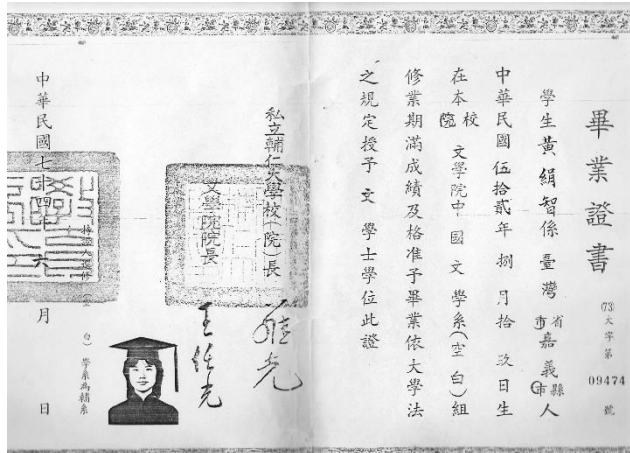 畢業證書
(73)大字第09474號
學生黃絹智係臺灣省市嘉義縣市人
中華民國伍拾貳年捌月拾玖日生
在本校院文學院中國文學系(空白)組
修業期滿成績及格准予畢業依大學法
之規定授予文學士學位此證
私立輔仁大學校(院)長
文學院院長
王任光
中華民國七十四年六月日
白)學系為輔系